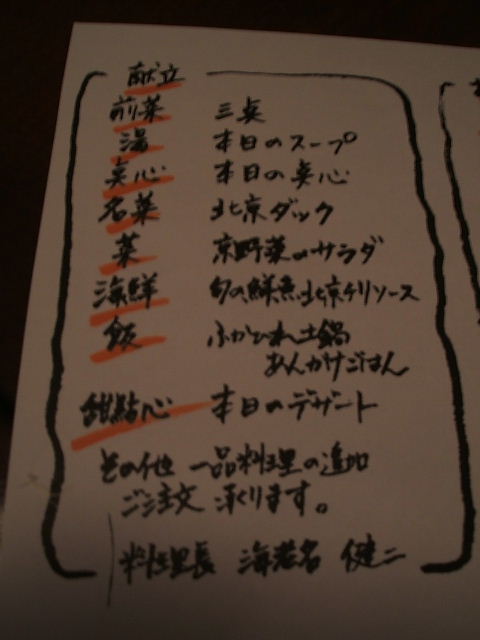 献立
前菜 三点
湯 本日のスープ
点心 本日の点心
名菜 北京ダック
菜 京野菜のサラダ
海鮮 旬の鮮魚北京チリソース
飯 ふかひれ土鍋
あんかけごはん
甜点心 本日のデザート
その他 一品料理の追加
ご注文 承くります。
料理長 海老名 健二